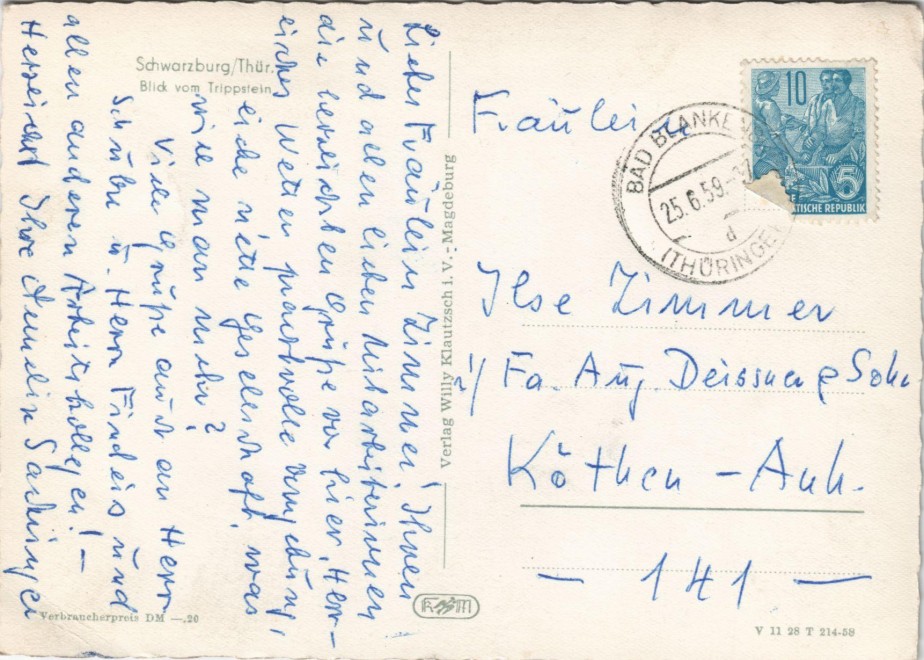 Schwarzburg/Thür.
Blick vom Trippstein
Liebes Fräulein Zimmer! Ihnen
und allen lieben Mitarbeiterinnen
die herzlichsten Grüße von hier. Herr-
liches Wetter prachtvolle Umgebung,
eine nette Gesellschaft, was
will man mehr?
Viele Grüße auch an Herrn
Schulze u. Herrn Findeis und
allen anderen Arbeitskollegen! –
Herzlichst Ihre
Verbraucherpreis DM —.20
Verlag Willy Klautzsch i. V. - Magdeburg
10
5
TISCHE REPUBLIK
BAD BLANKE
25.6.59
d
(THÜRINGE
Fräulein
Ilse Zimmer
i/ Fa. Aug. Deissner & Sohn
Köthen – Anh.
– 141 –
V 11 28 T 214-58